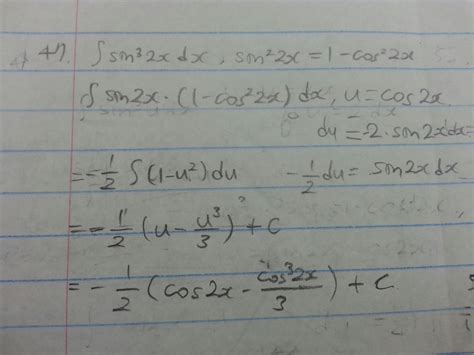 47. ∫ sin³ 2x dx, sin² 2x = 1 - cos² 2x
∫ sin2x · (1 - cos² 2x) dx, u = cos2x
du = -2 · sin2x dx
= -1/2 ∫ (1 - u²) du    -1/2 du = sin2x dx
= -1/2 (u - u³/3) + C
= -1/2 (cos2x - cos³2x/3) + C